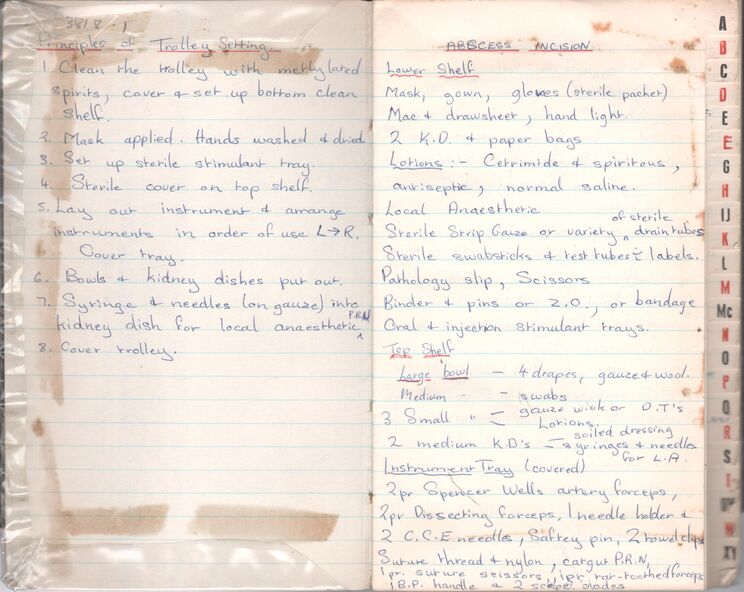 3818.1
Principles of Trolley Setting.
1. Clean the trolley with methylated
spirits, cover & set up bottom clean
shelf.
2. Mask applied. Hands washed & dried
3. Set up sterile stimulant tray.
4. Sterile cover on top shelf.
5. Lay out instrument & arrange
instruments in order of use L→R.
Cover tray.
6. Bowls & kidney dishes put out.
7. Syringe & needles (on gauze) into
kidney dish for local anaesthetic P.R.N
8. Cover trolley.
ABSCESS INCISION
Lower Shelf
Mask, gown, gloves (sterile packet)
Mac & drawsheet, hand light.
2 K.D. & paper bags
Lotions :- Cetrimide & spiritous,
antiseptic, normal saline.
Local Anaesthetic
Sterile Strip Gauze or variety of sterile drain tubes
Sterile swabsticks & test tubes c̄ labels.
Pathology slip, Scissors
Binder & pins or Z.O., or bandage
Oral & injection stimulant trays.
Top Shelf
Large bowl - 4 drapes, gauze & wool.
Medium " - swabs
3 Small " - gauze wick or D.T's
Lotions.
2 medium K.D's - soiled dressing
syringes & needles
for L.A.
Instrument Tray (covered)
2pr Spencer Wells artery forceps,
2pr Dissecting forceps, 1 needle holder &
2 C.C.E needles, Saftey pin, 2 towel clips
Suture thread & nylon, catgut P.R.N,
1 pr. suture scissors, 1 pr. rat-toothed forceps
1 B.P. handle & 2 scapel blades
A
B
C
D
E
F
G
H
IJ
K
L
M
Mc
N
O
P
Q
R
S
T
UV
W
XY